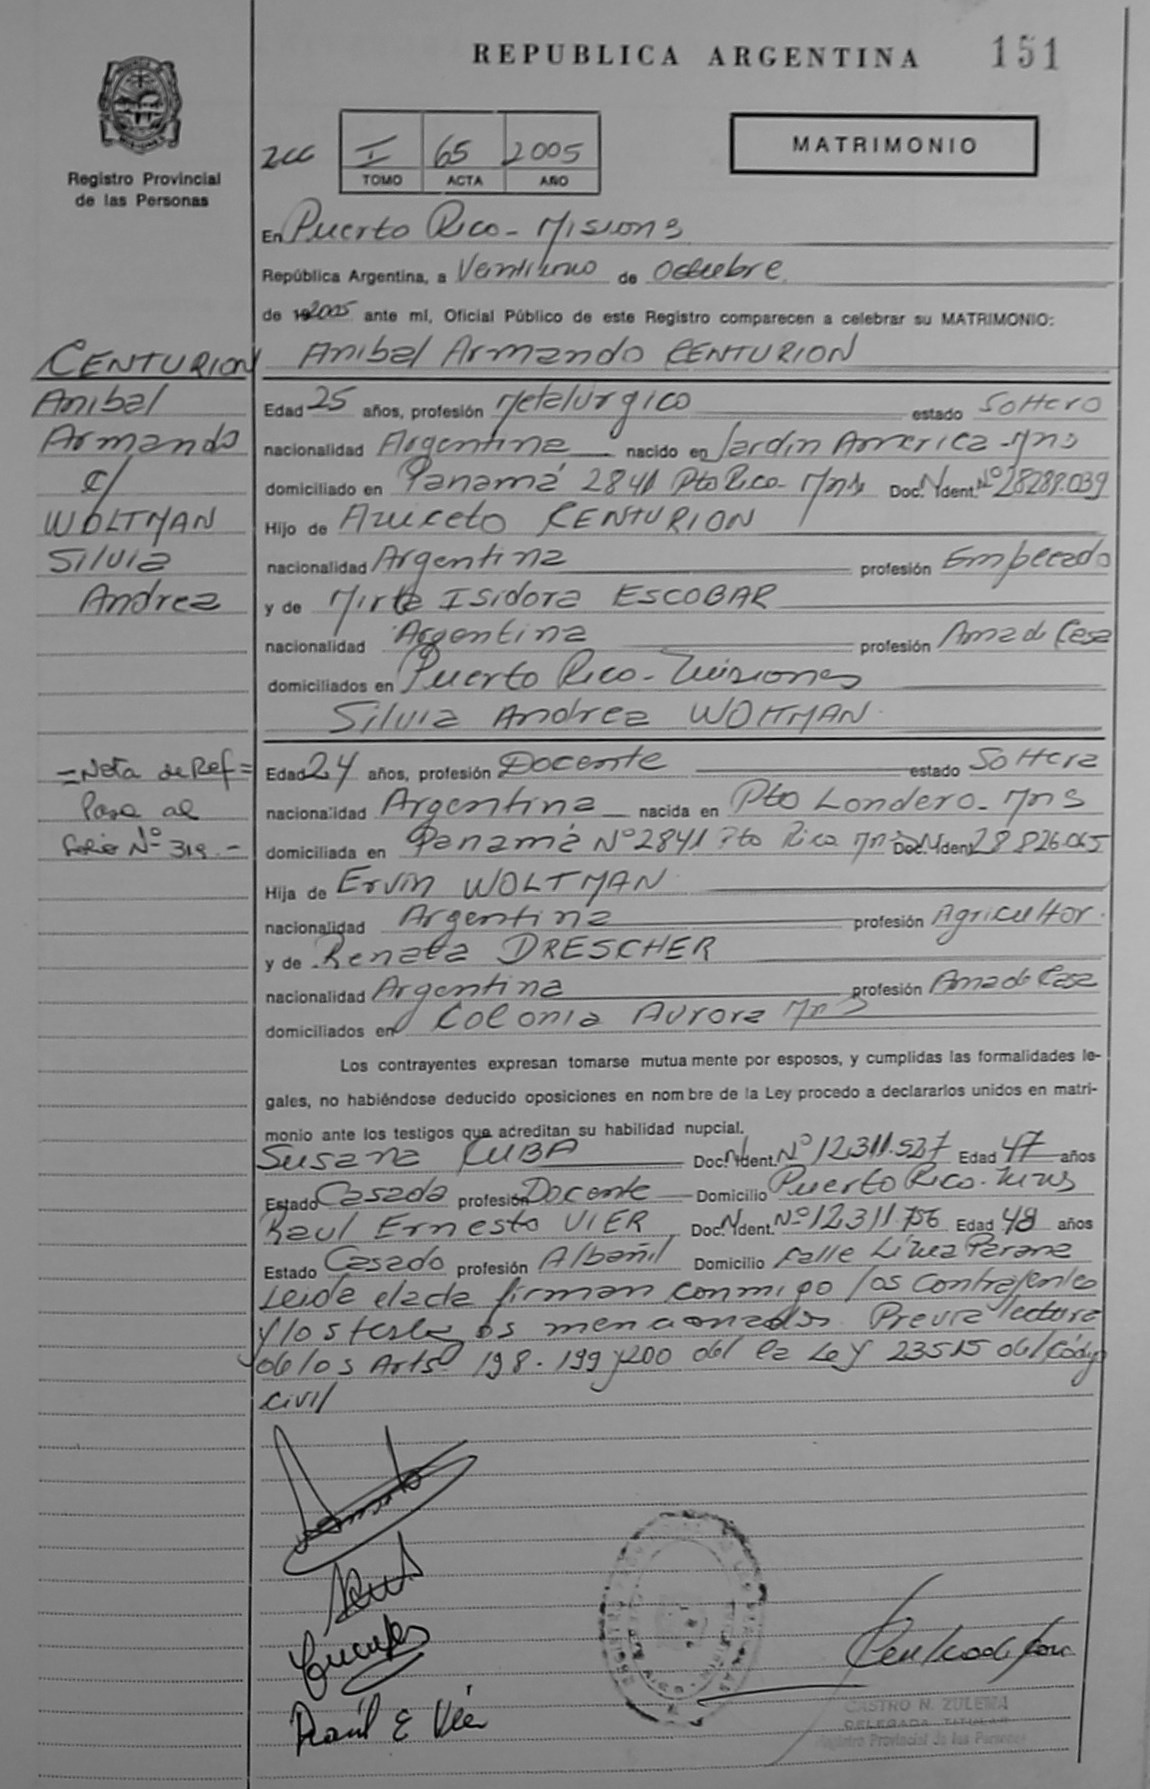 REPUBLICA ARGENTINA 151
Registro Provincial
de las Personas
2cc I 65 2005
TOMO ACTA AÑO
MATRIMONIO
En Puerto Rico - Misiones
República Argentina, a Veintiuno de Octubre
de 19 2005 ante mí, Oficial Público de este Registro comparecen a celebrar su MATRIMONIO:
CENTURION
Anibal
Armando
c/
WOLTMAN
Silvia
Andrea
Anibal Armando CENTURION
Edad 25 años, profesión Metalúrgico estado Soltero
nacionalidad Argentina nacido en Jardín América - Mns
domiciliado en Panamá 2841 Pto Rico - Mns Doc. N Ident. Nº 28289.039
Hijo de CENTURION
nacionalidad Argentina profesión Empleado
y de Mirta Isidora ESCOBAR
nacionalidad Argentina profesión Ama de Casa
domiciliados en Puerto Rico - Misiones
Silvia Andrea WOLTMAN
= Nota de Ref =
Pasa al
folio Nº 319.-
Edad 24 años, profesión Docente estado Soltera
nacionalidad Argentina nacida en Pto Londero - Mns
domiciliada en Panamá Nº 2841 Pto Rico Mns Doc. N Ident. 28826.065
Hija de Ervin WOLTMAN
nacionalidad Argentina profesión Agricultor.
y de Renata DRESCHER
nacionalidad Argentina profesión Ama de Casa
domiciliados en Colonia Aurora Mns
Los contrayentes expresan tomarse mutua mente por esposos, y cumplidas las formalidades le-
gales, no habiéndose deducido oposiciones en nom bre de la Ley procedo a declararlos unidos en matri-
monio ante los testigos que acreditan su habilidad nupcial.
Susana CUBA Doc. N Ident. Nº 12.311.527 Edad 47 años
Estado Casada profesión Docente Domicilio Puerto Rico - Mns
Raul Ernesto VIER Doc. N Ident. Nº 12.311.756 Edad 48 años
Estado Casado profesión Albañil Domicilio Calle Línea Parana
Leida el acta firman conmigo los contrayentes
y los testigos mencionados. Previa lectura
de los Arts 198 - 199 y 200 del la Ley 23515 del Códig
Civil
Raúl E Vier
CASTRO N. ZULEMA
DELEGADA TITULAR
Registro Provincial de las Personas